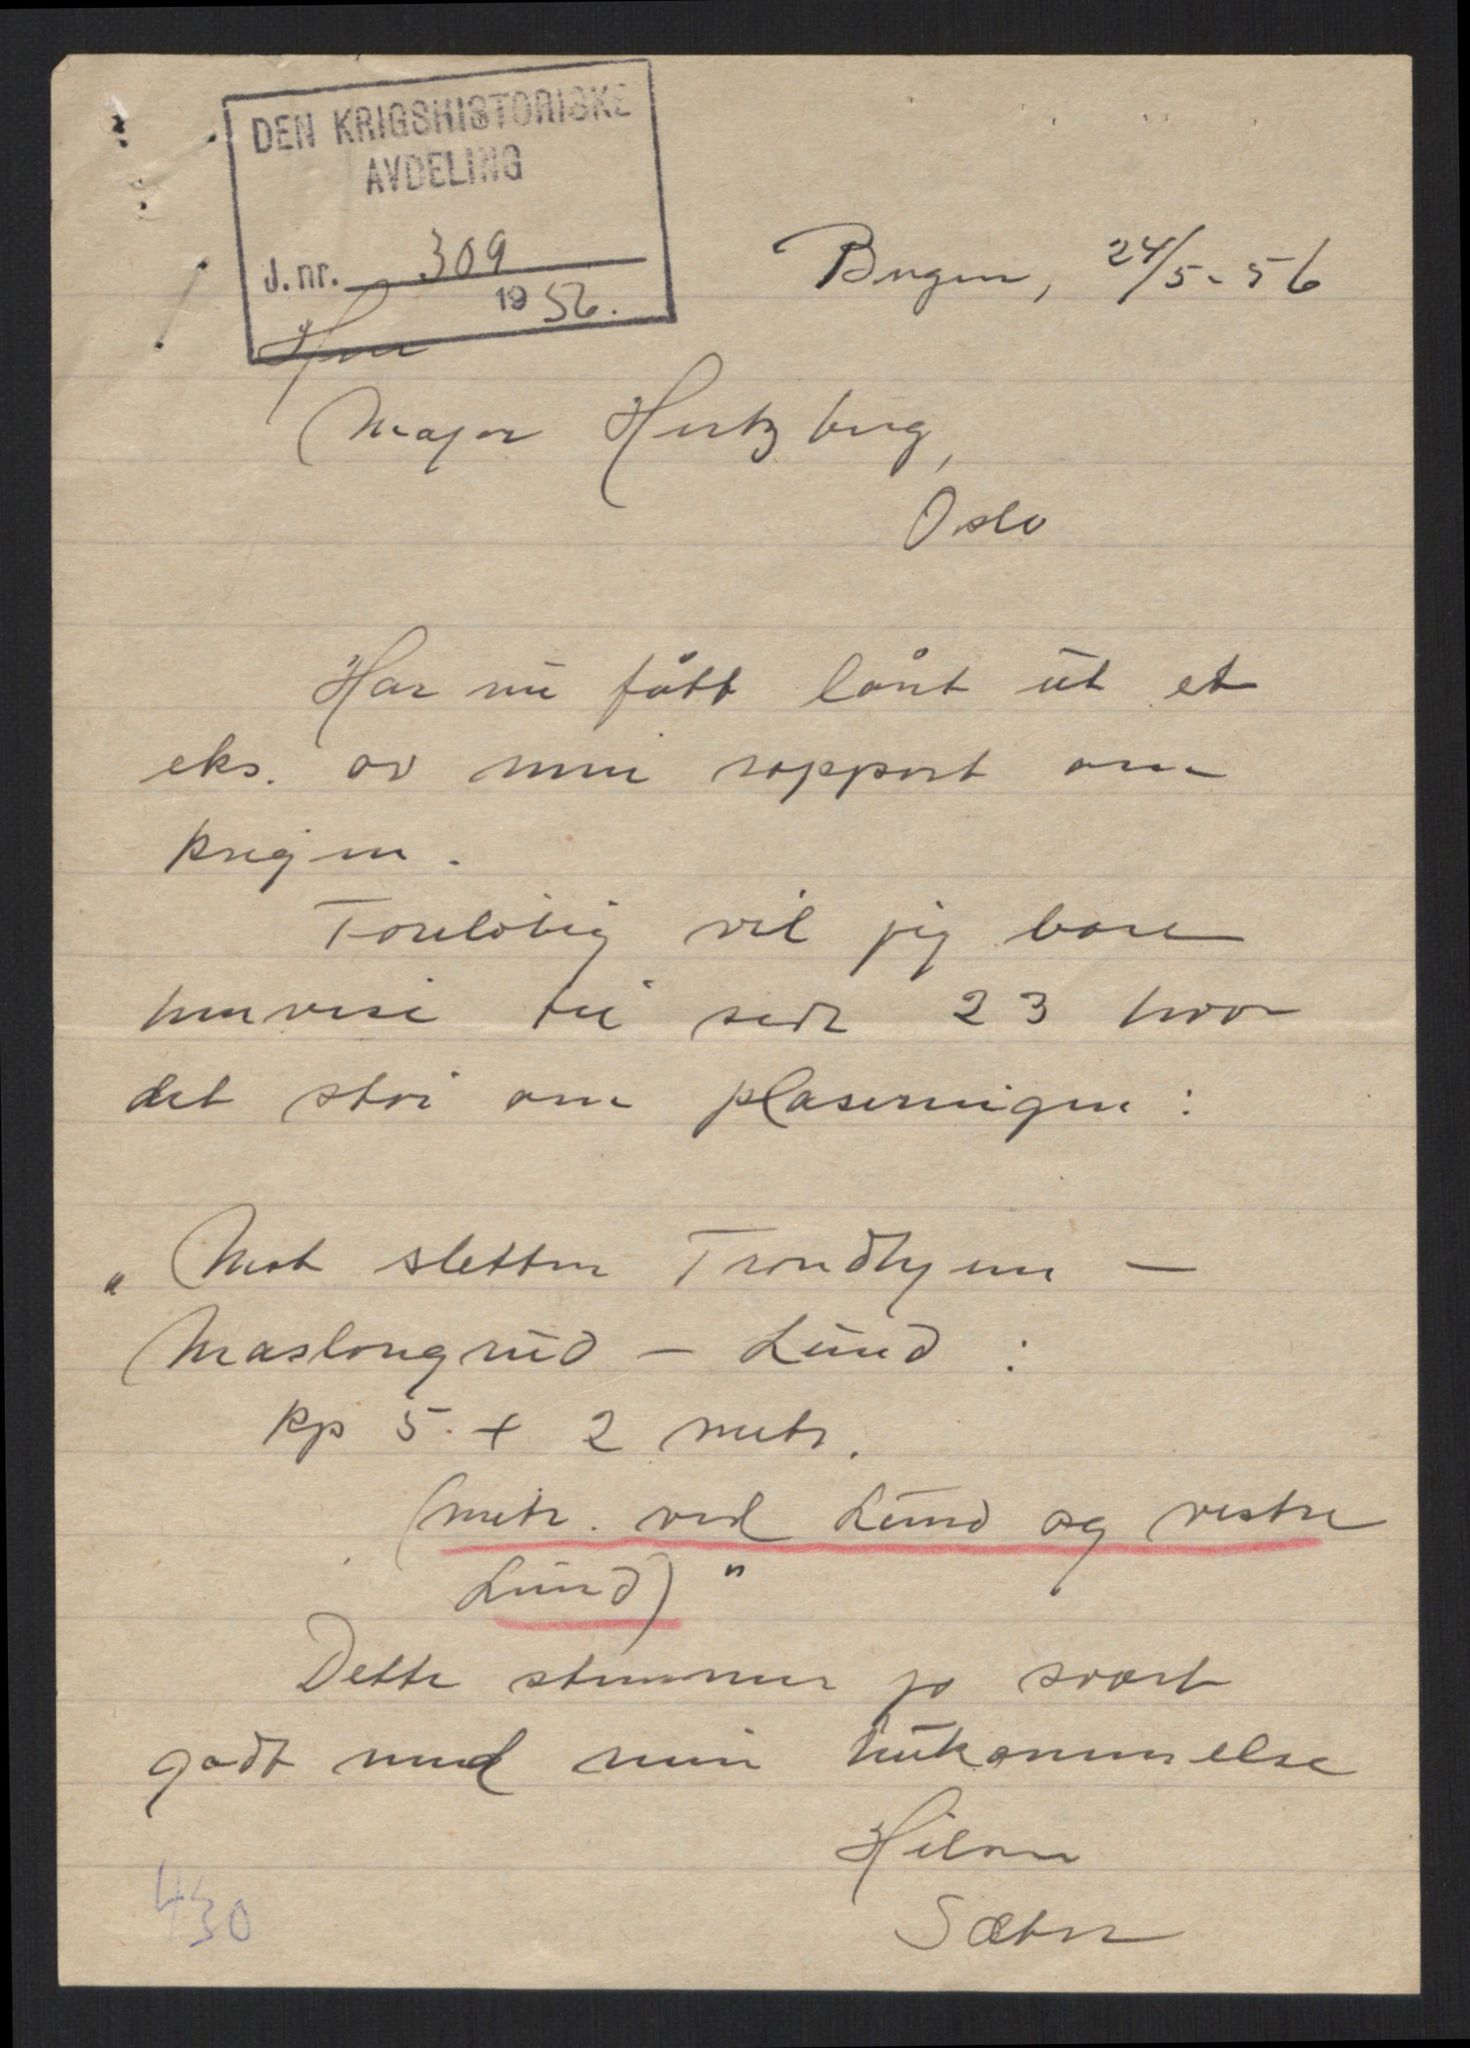 DEN KRIGSHISTORISKE
AVDELING
J.nr. 309
1956.
Bergen, 24/5-56
Herr
Major Hertzberg,
Oslo
Har nu fått lånt ut et
eks. av min rapport om
krigen.
Foreløbig vil jeg bare
henvise til side 23 hvor
det står om plaseringen :
„Mot sletten Trondhjem –
Maslangrud – Lund :
Kp 5. + 2 mitr.
(mitr. ved Lund og vestre
Lund)"
Dette stemmer jo svært
godt med min hukommelse
Hilsen
Sæter
430